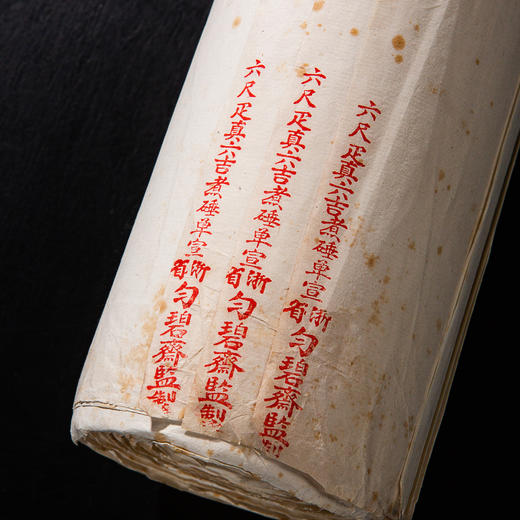 六尺疋真六吉煮硾单宣浙省勻碧齋監製
六尺疋真六吉煮硾单宣浙省勻碧齋監製
六尺疋真六吉煮硾单宣浙省勻碧齋監製